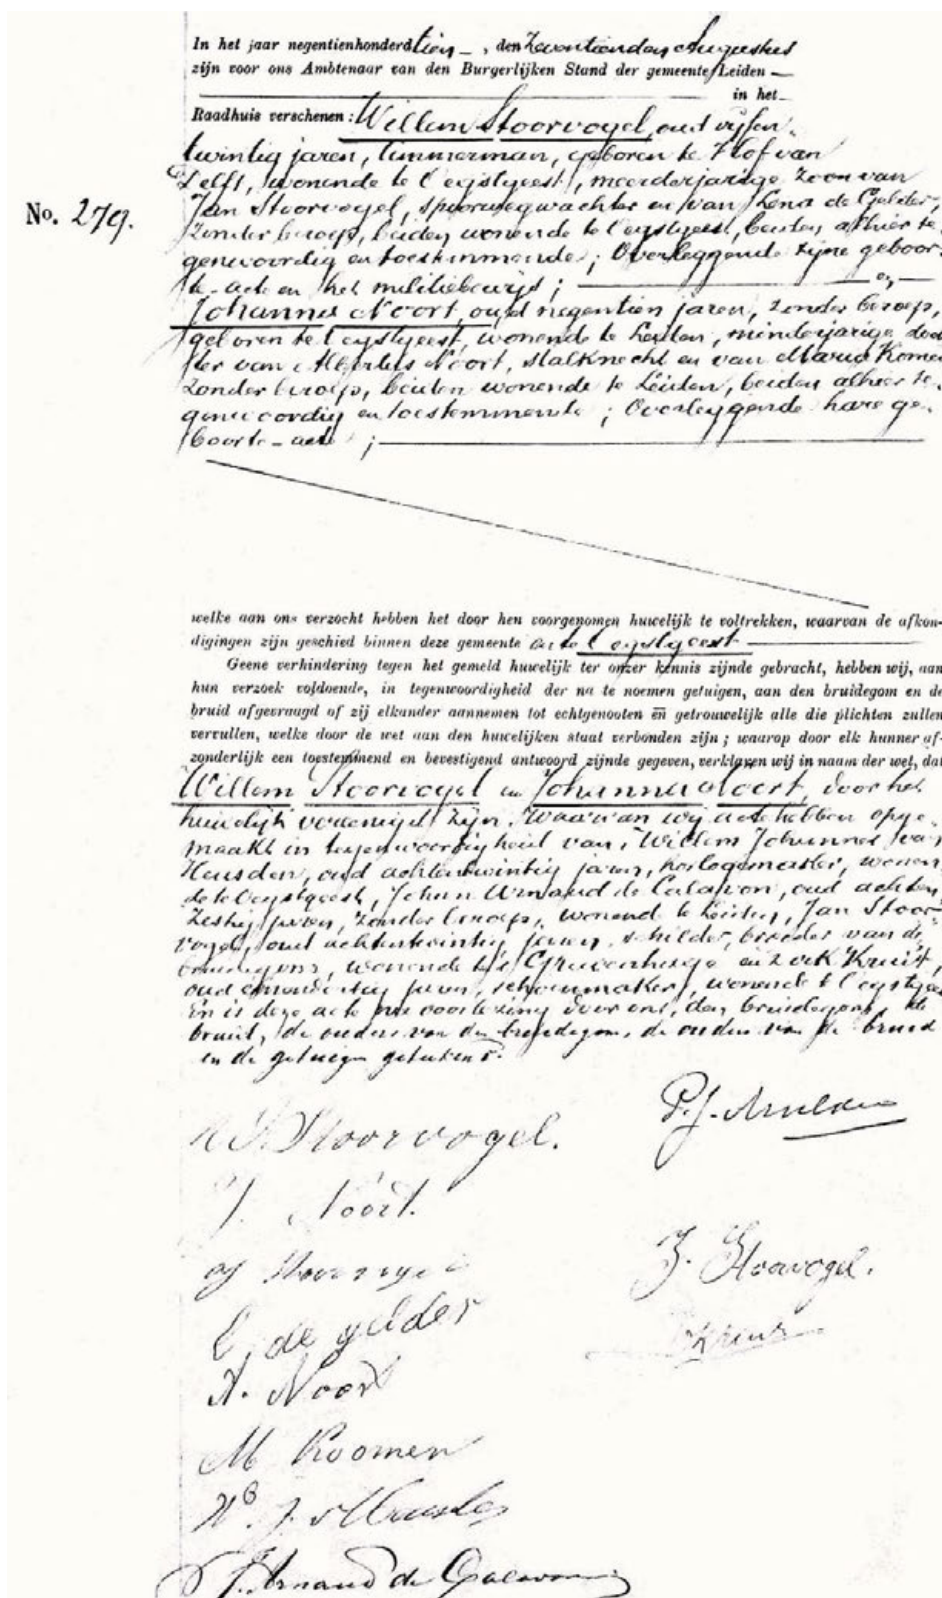 In het jaar negentienhonderd tien _ , den Zeventienden Augustus
zijn voor ons Ambtenaar van den Burgerlijken Stand der gemeente Leiden —
in het
Raadhuis verschenen: Willem Stoorvogel, oud vijfen-
twintig jaren, timmerman, geboren te Hof van
Delft, wonende te Oegstgeest, meerderjarige zoon van
No. 279.
Jan Stoorvogel, spoorwegwachter en van Lena de Gelder,
zonder beroep, beiden wonende te Oegstgeest, beiden alhier te-
genwoordig en toestemmende; Overleggende zijne geboor-
te-acte en het militiebewijs; en
Johanna Noort, oud negentien jaren, zonder beroep,
geboren te Oegstgeest, wonende te Leiden, minderjarige doch
ter van Albertus Noort, stalknecht en van Maria Komen
zonder beroep, beiden wonende te Leiden, beiden alhier te-
genwoordig en toestemmende; Overleggende hare ge-
boorte-acte;
welke aan ons verzocht hebben het door hen voorgenomen huwelijk te voltrekken, waarvan de afkon-
digingen zijn geschied binnen deze gemeente en te Oegstgeest
Geene verhindering tegen het gemeld huwelijk ter onzer kennis zijnde gebracht, hebben wij, aan
hun verzoek voldoende, in tegenwoordigheid der na te noemen getuigen, aan den bruidegom en de
bruid afgevraagd of zij elkander aannemen tot echtgenooten en getrouwelijk alle die plichten zullen
vervullen, welke door de wet aan den huwelijken staat verbonden zijn; waarop door elk hunner af-
zonderlijk een toestemmend en bevestigend antwoord zijnde gegeven, verklaren wij in naam der wet, dat
Willem Stoorvogel en Johanna Noort, door het
huwelijk vereenigd zijn. Waarvan wij acte hebben opge-
maakt in tegenwoordigheid van: Willem Johannes van
Heusden, oud achtentwintig jaren, horlogemaker, wonen
de te Oegstgeest, Johan Arnaud de Calavon, oud achten
zestig jaren, zonder beroep, wonend te Leiden, Jan Stoor-
vogel, oud achtentwintig jaren, schilder, broeder van de
bruidegom, wonende te 's Gravenhage en Kruit,
oud eenendertig jaren, schoenmaker, wonende te Oegstgeest
En is deze acte na voorlezing door ons, den bruidegom, de
bruid, de ouders van den bruidegom, de ouders van de bruid
en de getuigen geteekend.
W Stoorvogel.
P.J. Mulder
J. Noort.
J. Stoorvogel.
L. de gelder
A. Noort
M Koomen
W. J. v Heusden
J. Arnaud de Calavon